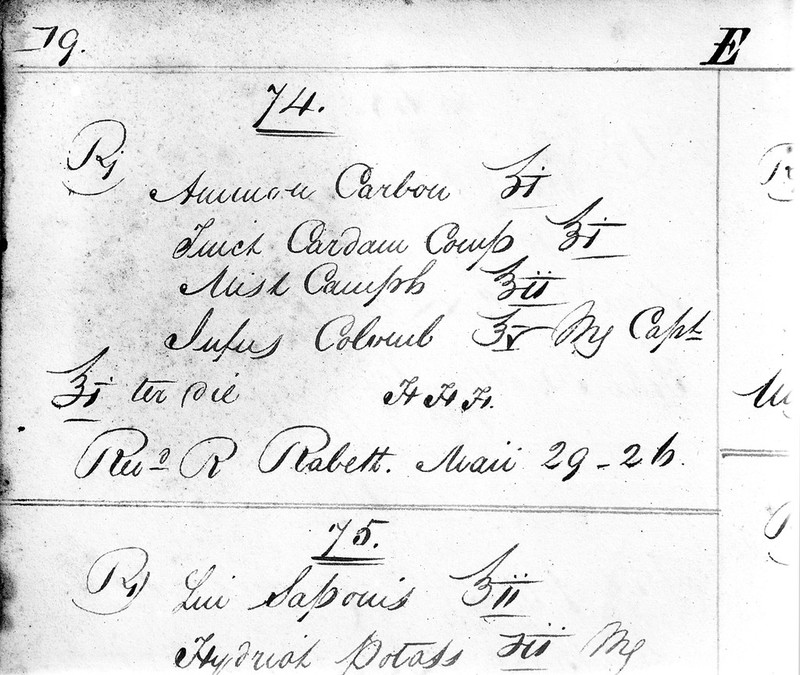 79.
E
74.
℞ Ammon Carbon ʒi
Tinct Cardam Comp ʒi
Mist Camph ʒii
Infus Colomb ʒv Mg Capt
ʒi ter die
Revd R Rabett. Maii 29-26.
75.
℞ Lini Saponis ʒii
Hydriat Potass ʒii Mg